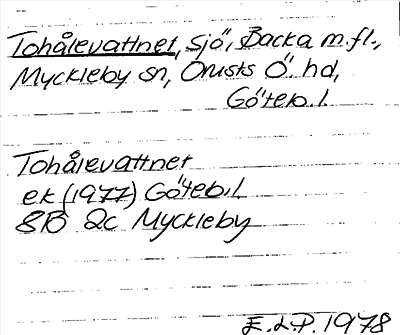 Tohålevattnet, sjö, Backa m.fl.,
Myckleby sn, Orusts Ö. hd,
Göteb. l.
Tohålevattnet
ek (1977) Göteb. l.
8B 2c Myckleby
E.LP. 1978